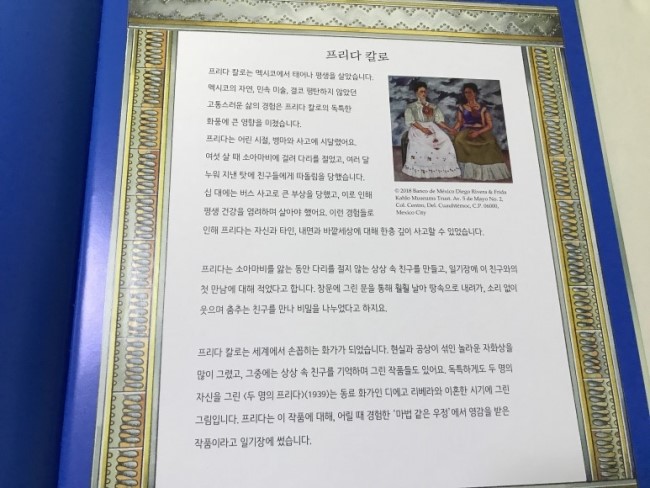 프리다 칼로
프리다 칼로는 멕시코에서 태어나 평생을 살았습니다.
멕시코의 자연, 민속 미술, 결코 평탄하지 않았던
고통스러운 삶의 경험은 프리다 칼로의 독특한
화풍에 큰 영향을 미쳤습니다.
프리다는 어린 시절, 병마와 사고에 시달렸어요.
여섯 살 때 소아마비에 걸려 다리를 절었고, 여러 달
누워 지낸 탓에 친구들에게 따돌림을 당했습니다.
십 대에는 버스 사고로 큰 부상을 당했고, 이로 인해
평생 건강을 염려하며 살아야 했어요. 이런 경험들로
인해 프리다는 자신과 타인, 내면과 바깥세상에 대해 한층 깊이 사고할 수 있었습니다.
© 2018 Banco de México Diego Rivera & Frida
Kahlo Museums Trust. Av. 5 de Mayo No. 2,
Col. Centro, Del. Cuauhtémoc, C.P. 06000,
Mexico City
프리다는 소아마비를 앓는 동안 다리를 절지 않는 상상 속 친구를 만들고, 일기장에 이 친구와의
첫 만남에 대해 적었다고 합니다. 창문에 그린 문을 통해 훨훨 날아 땅속으로 내려가, 소리 없이
웃으며 춤추는 친구를 만나 비밀을 나누었다고 하지요.
프리다 칼로는 세계에서 손꼽히는 화가가 되었습니다. 현실과 공상이 섞인 놀라운 자화상을
많이 그렸고, 그중에는 상상 속 친구를 기억하며 그린 작품들도 있어요. 독특하게도 두 명의
자신을 그린 〈두 명의 프리다〉(1939)는 동료 화가인 디에고 리베라와 이혼한 시기에 그린
그림입니다. 프리다는 이 작품에 대해, 어릴 때 경험한 '마법 같은 우정'에서 영감을 받은
작품이라고 일기장에 썼습니다.